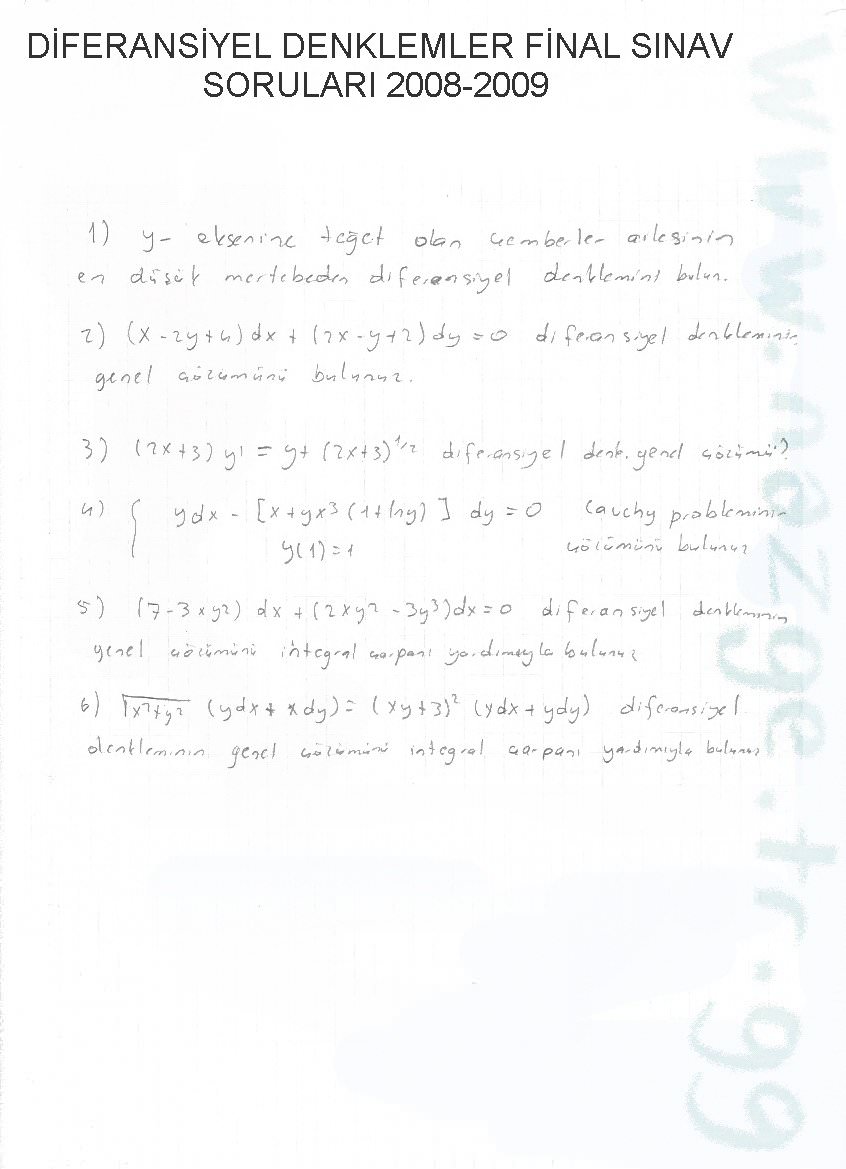 DİFERANSİYEL DENKLEMLER FİNAL SINAV
SORULARI 2008-2009
1) y- eksenine teğet olan çemberler ailesinin
en düşük mertebeden diferansiyel denklemini bulun.
2) (x-2y+4)dx + (2x-y+2)dy=0 diferansiyel denkleminin
genel çözümünü bulunuz.
3) (2x+3) y' = y+ (2x+3)^1/2 diferansiyel denk. genel çözümü?
4) { ydx - [x+yx³(1+lny)] dy=0 Cauchy probleminin
y(1)=1 çözümünü bulunuz
5) (7-3xy²) dx + (2xy² -3y³)dx=0 diferansiyel denkleminin
genel çözümünü integral çarpanı yardımıyla bulunuz
6) √x²+y² (ydx+xdy)= (xy+3)² (ydx+ydy) diferansiyel
denkleminin genel çözümünü integral çarpanı yardımıyla bulunuz
www.nazge.tr.gg